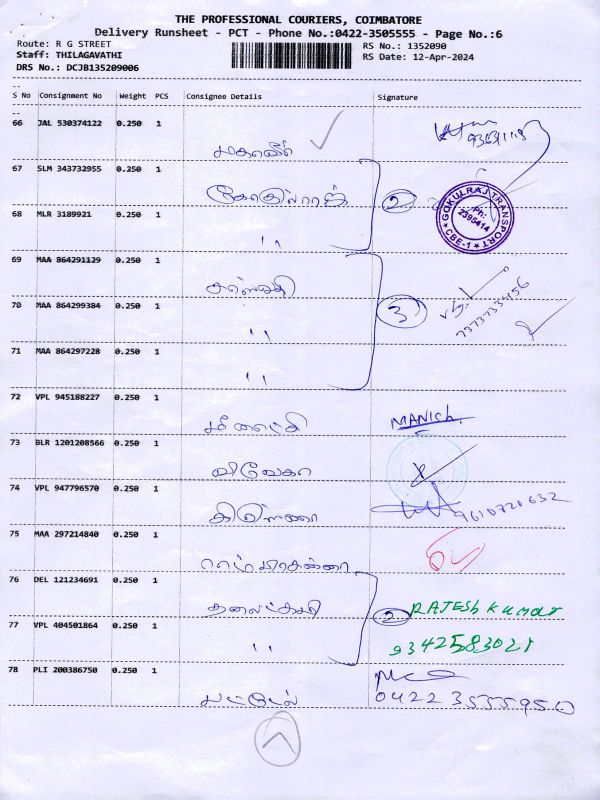 THE PROFESSIONAL COURIERS, COIMBATORE
Delivery Runsheet - PCT - Phone No.:0422-3505555 - Page No.:6
Route: R G STREET
RS No.: 1352090
Staff: THILAGAVATHI
RS Date: 12-Apr-2024
DRS No.: DCJB135209006
S No Consignment No Weight PCS Consignee Details Signature
66 JAL 530374122 0.250 1
மகாவீர்
67 SLM 343732955 0.250 1
கோகுல்ராஜ் 2
GOKULRAJ TRANSPORT
Ph: 2395414
CBE-1
68 MLR 3189921 0.250 1
''
69 MAA 864291129 0.250 1
70 MAA 864299384 0.250 1
'' 3 7373733456
71 MAA 864297228 0.250 1
''
72 VPL 945188227 0.250 1
மீனாட்சி MANICh.
73 BLR 1201208566 0.250 1
விவேகா
74 VPL 947796570 0.250 1
கிருஷ்ணா 9610720632
75 MAA 297214840 0.250 1
76 DEL 121234691 0.250 1
2 RAJESh kumar
77 VPL 404501864 0.250 1
'' 9342583021
78 PLI 200386750 0.250 1
பட்டேல் 0422 3555950